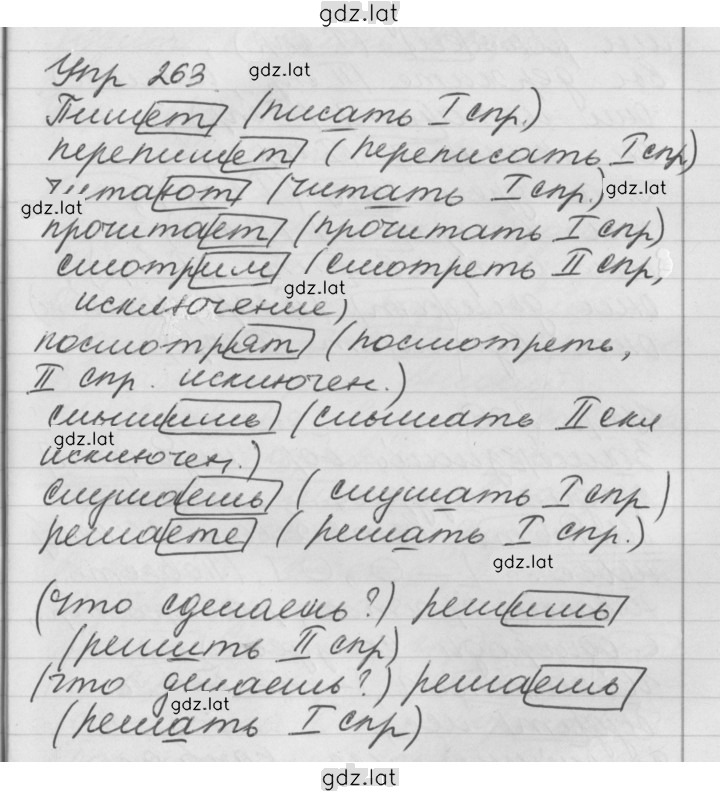 gdz.lat
Упр 263.
gdz.lat
Пишет (писать I спр.)
перепишет (переписать I спр)
читают (читать I спр.)
gdz.lat
gdz.lat
прочитает (прочитать I спр)
смотрим (смотреть II спр,
gdz.lat
исключение)
посмотрят (посмотреть,
II спр. исключен.)
слышишь (слышать II скл
gdz.lat
исключен.)
слушаешь (слушать I спр)
решаете (решать I спр.)
gdz.lat
(что сделаешь?) решишь
(решить II спр)
(что делаешь?) решаешь
gdz.lat
(решать I спр)
gdz.lat